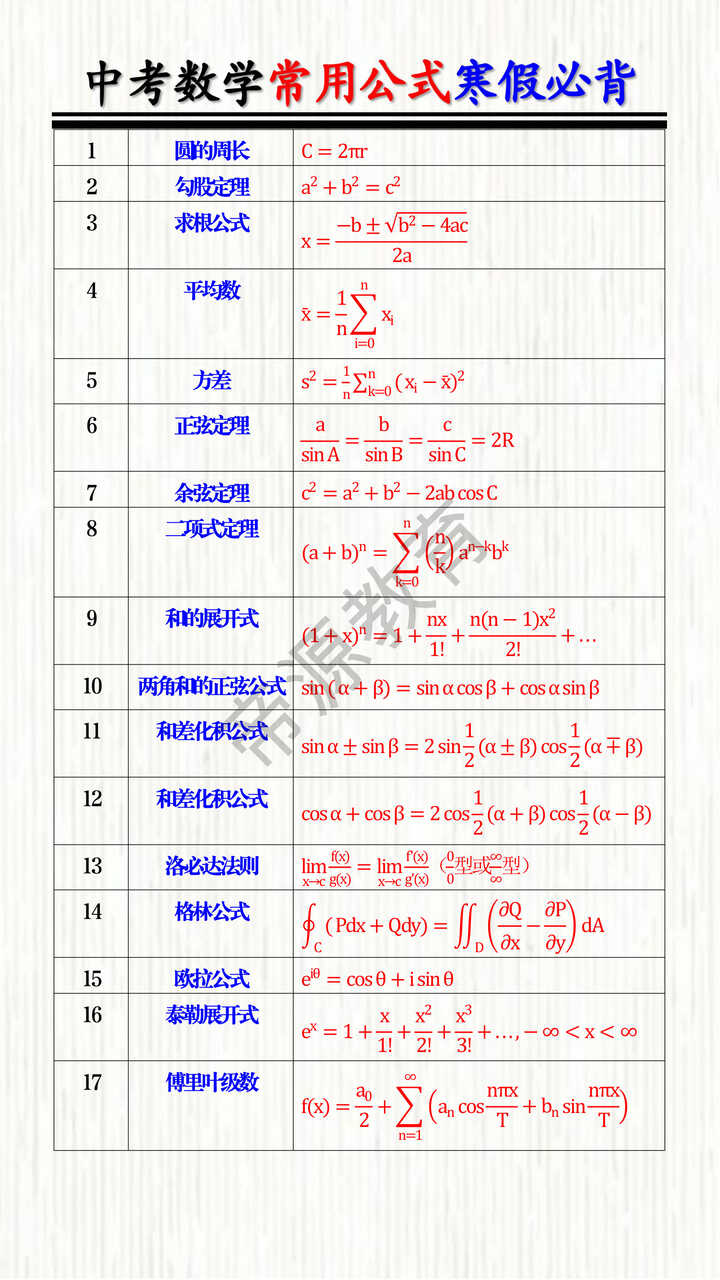 中考数学常用公式寒假必背
1 圆的周长 C = 2πr
2 勾股定理 a² + b² = c²
3 求根公式 x = (−b ± √(b² − 4ac)) / 2a
4 平均数 x̄ = 1/n ∑_{i=0}^{n} x_i
5 方差 s² = 1/n ∑_{k=0}^{n} (x_i − x̄)²
6 正弦定理 a/sin A = b/sin B = c/sin C = 2R
7 余弦定理 c² = a² + b² − 2ab cos C
8 二项式定理 (a + b)^n = ∑_{k=0}^{n} (n/k) a^{n−k} b^k
9 和的展开式 (1 + x)^n = 1 + nx/1! + n(n − 1)x²/2! + …
10 两角和的正弦公式 sin (α + β) = sin α cos β + cos α sin β
11 和差化积公式 sin α ± sin β = 2 sin 1/2 (α ± β) cos 1/2 (α ∓ β)
12 和差化积公式 cos α + cos β = 2 cos 1/2 (α + β) cos 1/2 (α − β)
13 洛必达法则 lim_{x→c} f(x)/g(x) = lim_{x→c} f'(x)/g'(x)（0/0型或∞/∞型）
14 格林公式 ∮_C (Pdx + Qdy) = ∬_D (∂Q/∂x − ∂P/∂y) dA
15 欧拉公式 e^{iθ} = cos θ + i sin θ
16 泰勒展开式 e^x = 1 + x/1! + x²/2! + x³/3! + …, −∞ < x < ∞
17 傅里叶级数 f(x) = a₀/2 + ∑_{n=1}^{∞} (a_n cos nπx/T + b_n sin nπx/T)
帝源教育